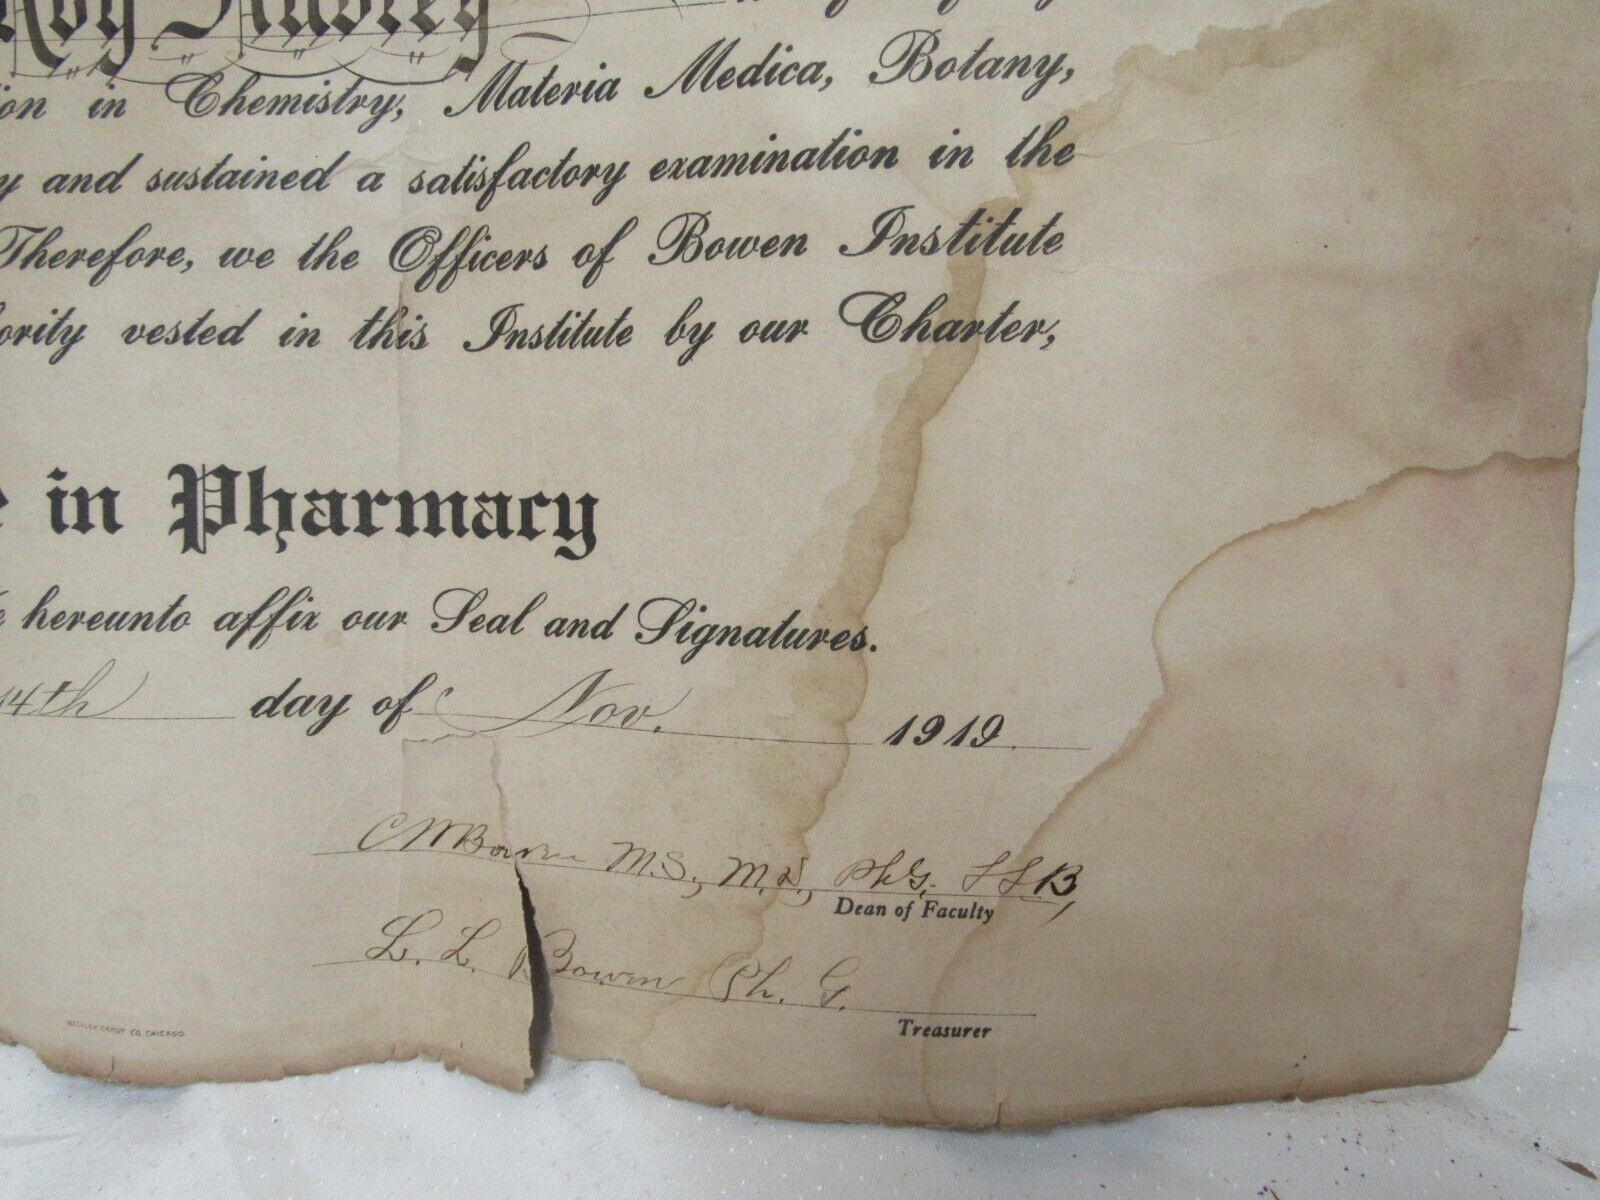 Roy Aubrey
ion in Chemistry, Materia Medica, Botany,
y and sustained a satisfactory examination in the
Therefore, we the Officers of Bowen Institute
ority vested in this Institute by our Charter,
e in Pharmacy
e hereunto affix our Seal and Signatures.
14th day of Nov. 1919
C M Bowen M.S., M.D., PhG, LLB,
Dean of Faculty
L. L. Bowen Ph. G.
Treasurer
BECKLEY CARDY CO. CHICAGO